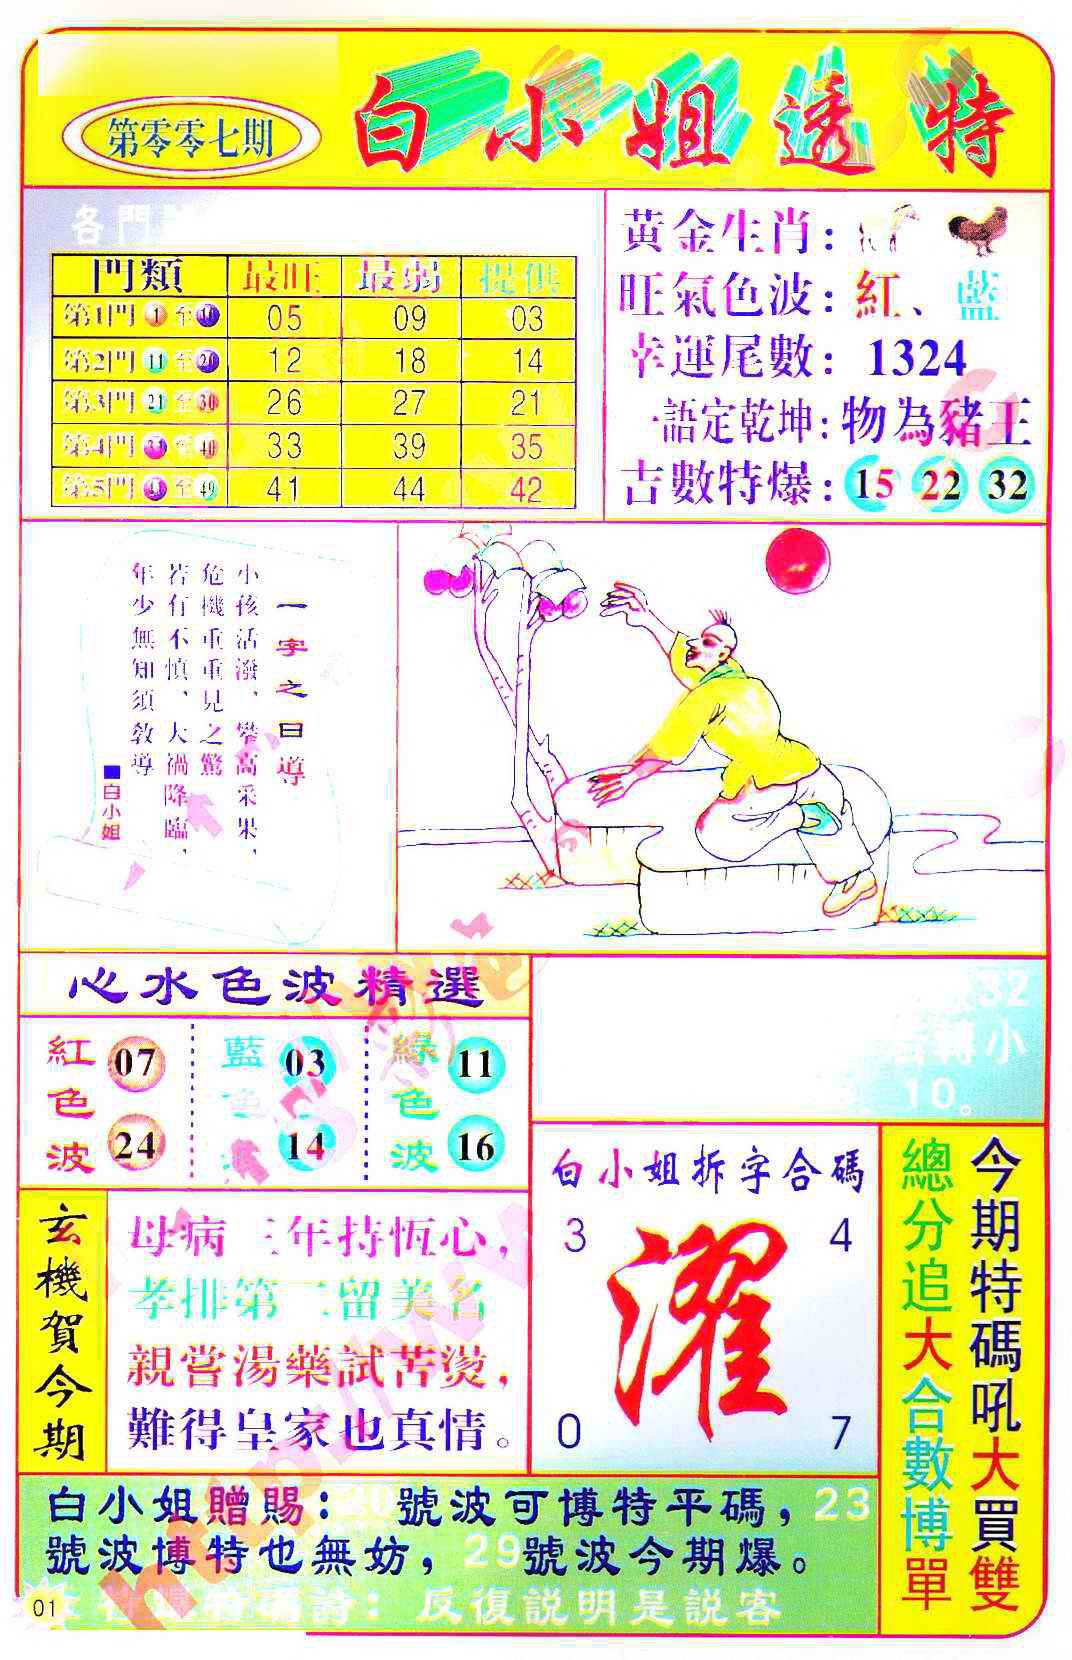 第零零七期
白小姐透特
各門
門類 最旺 最弱 提供
第1門 1 至 10 05 09 03
第2門 11 至 20 12 18 14
第3門 21 至 30 26 27 21
第4門 31 至 40 33 39 35
第5門 41 至 49 41 44 42
黃金生肖:
旺氣色波:紅、藍
幸運尾數:1324
一語定乾坤:物為豬王
古數特爆:15 22 32
一字之曰導
小孩活潑、攀高采果、
危機重重見之驚
若有不慎、大禍降臨、
年少無知須教導
■白小姐
心水色波精選
紅色波 07 24
藍色波 03 14
綠色波 11 16
32
若轉小
10。
玄機賀今期
母病三年持恆心,
孝排第二留美名
親嘗湯藥試苦燙,
難得皇家也真情。
白小姐拆字合碼
3 4
濯
0 7
今期特碼吼大買雙
總分追大合數博單
白小姐贈賜:20號波可博特平碼,23
號波博特也無妨,29號波今期爆。
詩:反復説明是説客
01
http://www